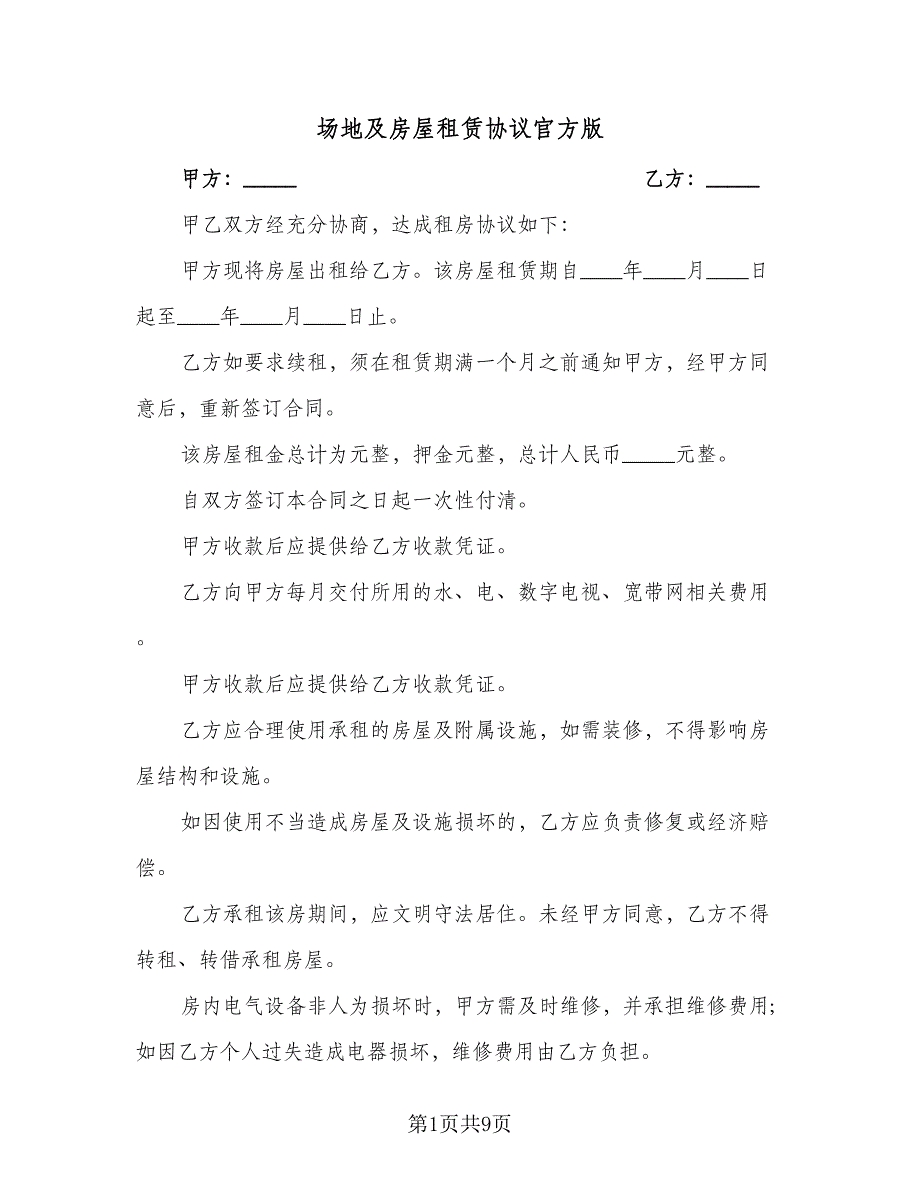 场地及房屋租赁协议官方版
甲方：_____ 乙方：_____
甲乙双方经充分协商，达成租房协议如下：
甲方现将房屋出租给乙方。该房屋租赁期自____年____月____日
起至____年____月____日止。
乙方如要求续租，须在租赁期满一个月之前通知甲方，经甲方同
意后，重新签订合同。
该房屋租金总计为元整，押金元整，总计人民币_____元整。
自双方签订本合同之日起一次性付清。
甲方收款后应提供给乙方收款凭证。
乙方向甲方每月交付所用的水、电、数字电视、宽带网相关费用
。
甲方收款后应提供给乙方收款凭证。
乙方应合理使用承租的房屋及附属设施，如需装修，不得影响房
屋结构和设施。
如因使用不当造成房屋及设施损坏的，乙方应负责修复或经济赔
偿。
乙方承租该房期间，应文明守法居住。未经甲方同意，乙方不得
转租、转借承租房屋。
房内电气设备非人为损坏时，甲方需及时维修，并承担维修费用；
如因乙方个人过失造成电器损坏，维修费用由乙方负担。
第1页共9页